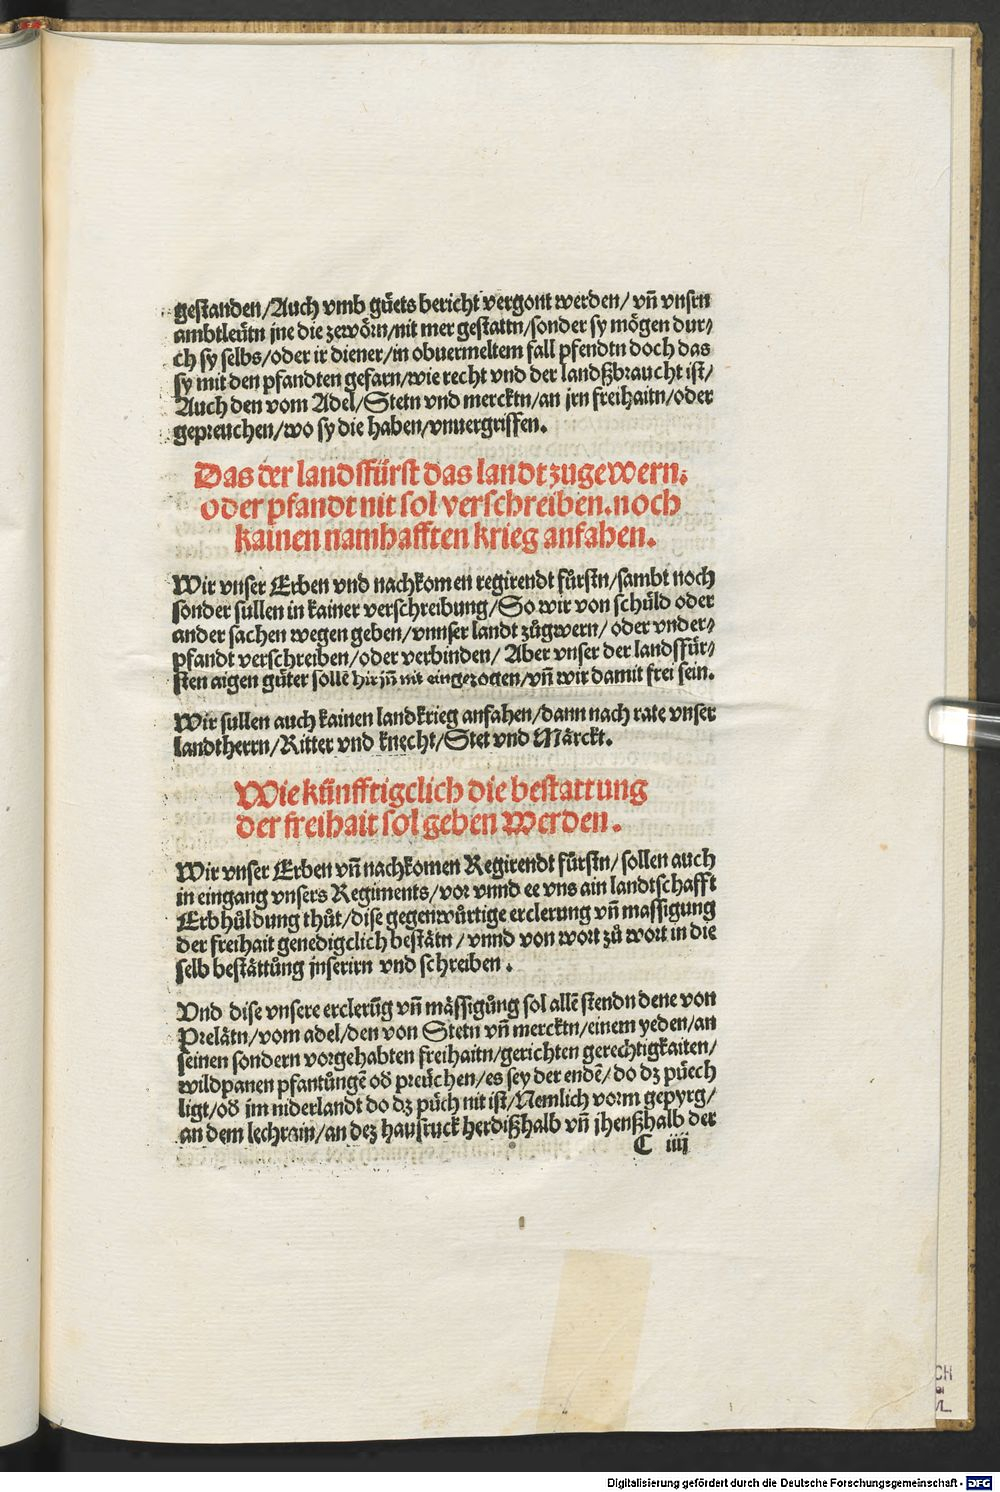 gestanden/Auch vmb gůets bericht vergont werden/ vñ vnsrn
ambtleůtn jne die zewörn/nit mer gestattn/sonder sy mögen dur⸗
ch sy selbs/oder ir diener/in obuermeltem fall pfendtn doch das
sy mit den pfandten gefarn/wie recht vnd der landßbraucht ist/
Auch den vom Adel/Stetn vnd mercktn/an jrn freihaitn/oder
gepreuchen/wo sy die haben/vnuergriffen.
Das der landsfürst das landt zugewern⸗
oder pfandt nit sol verschreiben.noch
kainen namhafften krieg anfahen.
Wir vnser Erben vnd nachkomen regirendt fůrstn/sambt noch
sonder sullen in kainer verschreibung/So wir von schůld oder
ander sachen wegen geben/vnnser landt zůgwern/ oder vnder⸗
pfandt verschreiben/oder verbinden/ Aber vnser der landsfür⸗
sten aigen gůter sollē hir jñ nit eingezogen/vñ wir damit frei sein.
Wir sullen auch kainen landkrieg anfahen/dann nach rate vnser
landtherrn/Ritter vnd knecht/Stet vnd Märckt.
Wie kůnfftigclich die bestattung
der freihait sol geben werden.
Wir vnser Erben vñ nachkomen Regirendt fůrstn/ sollen auch
in eingang vnsers Regiments/vor vnnd ee vns ain landtschafft
Erbhůldung thůt/dise gegenwůrtige erclerung vñ massigung
der freihait genedigclich bestätn/vnnd von wort zů wort in die
selb bestättůng jnserirn vnd schreiben.
Vnd dise vnsere erclerũg vñ mässigůng sol allē stendn dene von
Prelätn/vom adel/den von Stetn vñ mercktn/einem yeden/an
seinen sondern vorgehabten freihaitn/gerichten gerechtigkaiten/
wildpanen pfantůngē od preüchen/es sey der endē/do dz půech
ligt/od jm niderlandt do dz půch nit ist/Nemlich vorm gepyrg/
an dem lechrain/an dez hausruck herdißhalb vñ jhenßhalb der
C iiij
CH
Digitalisierung gefördert durch die Deutsche Forschungsgemeinschaft - DFG